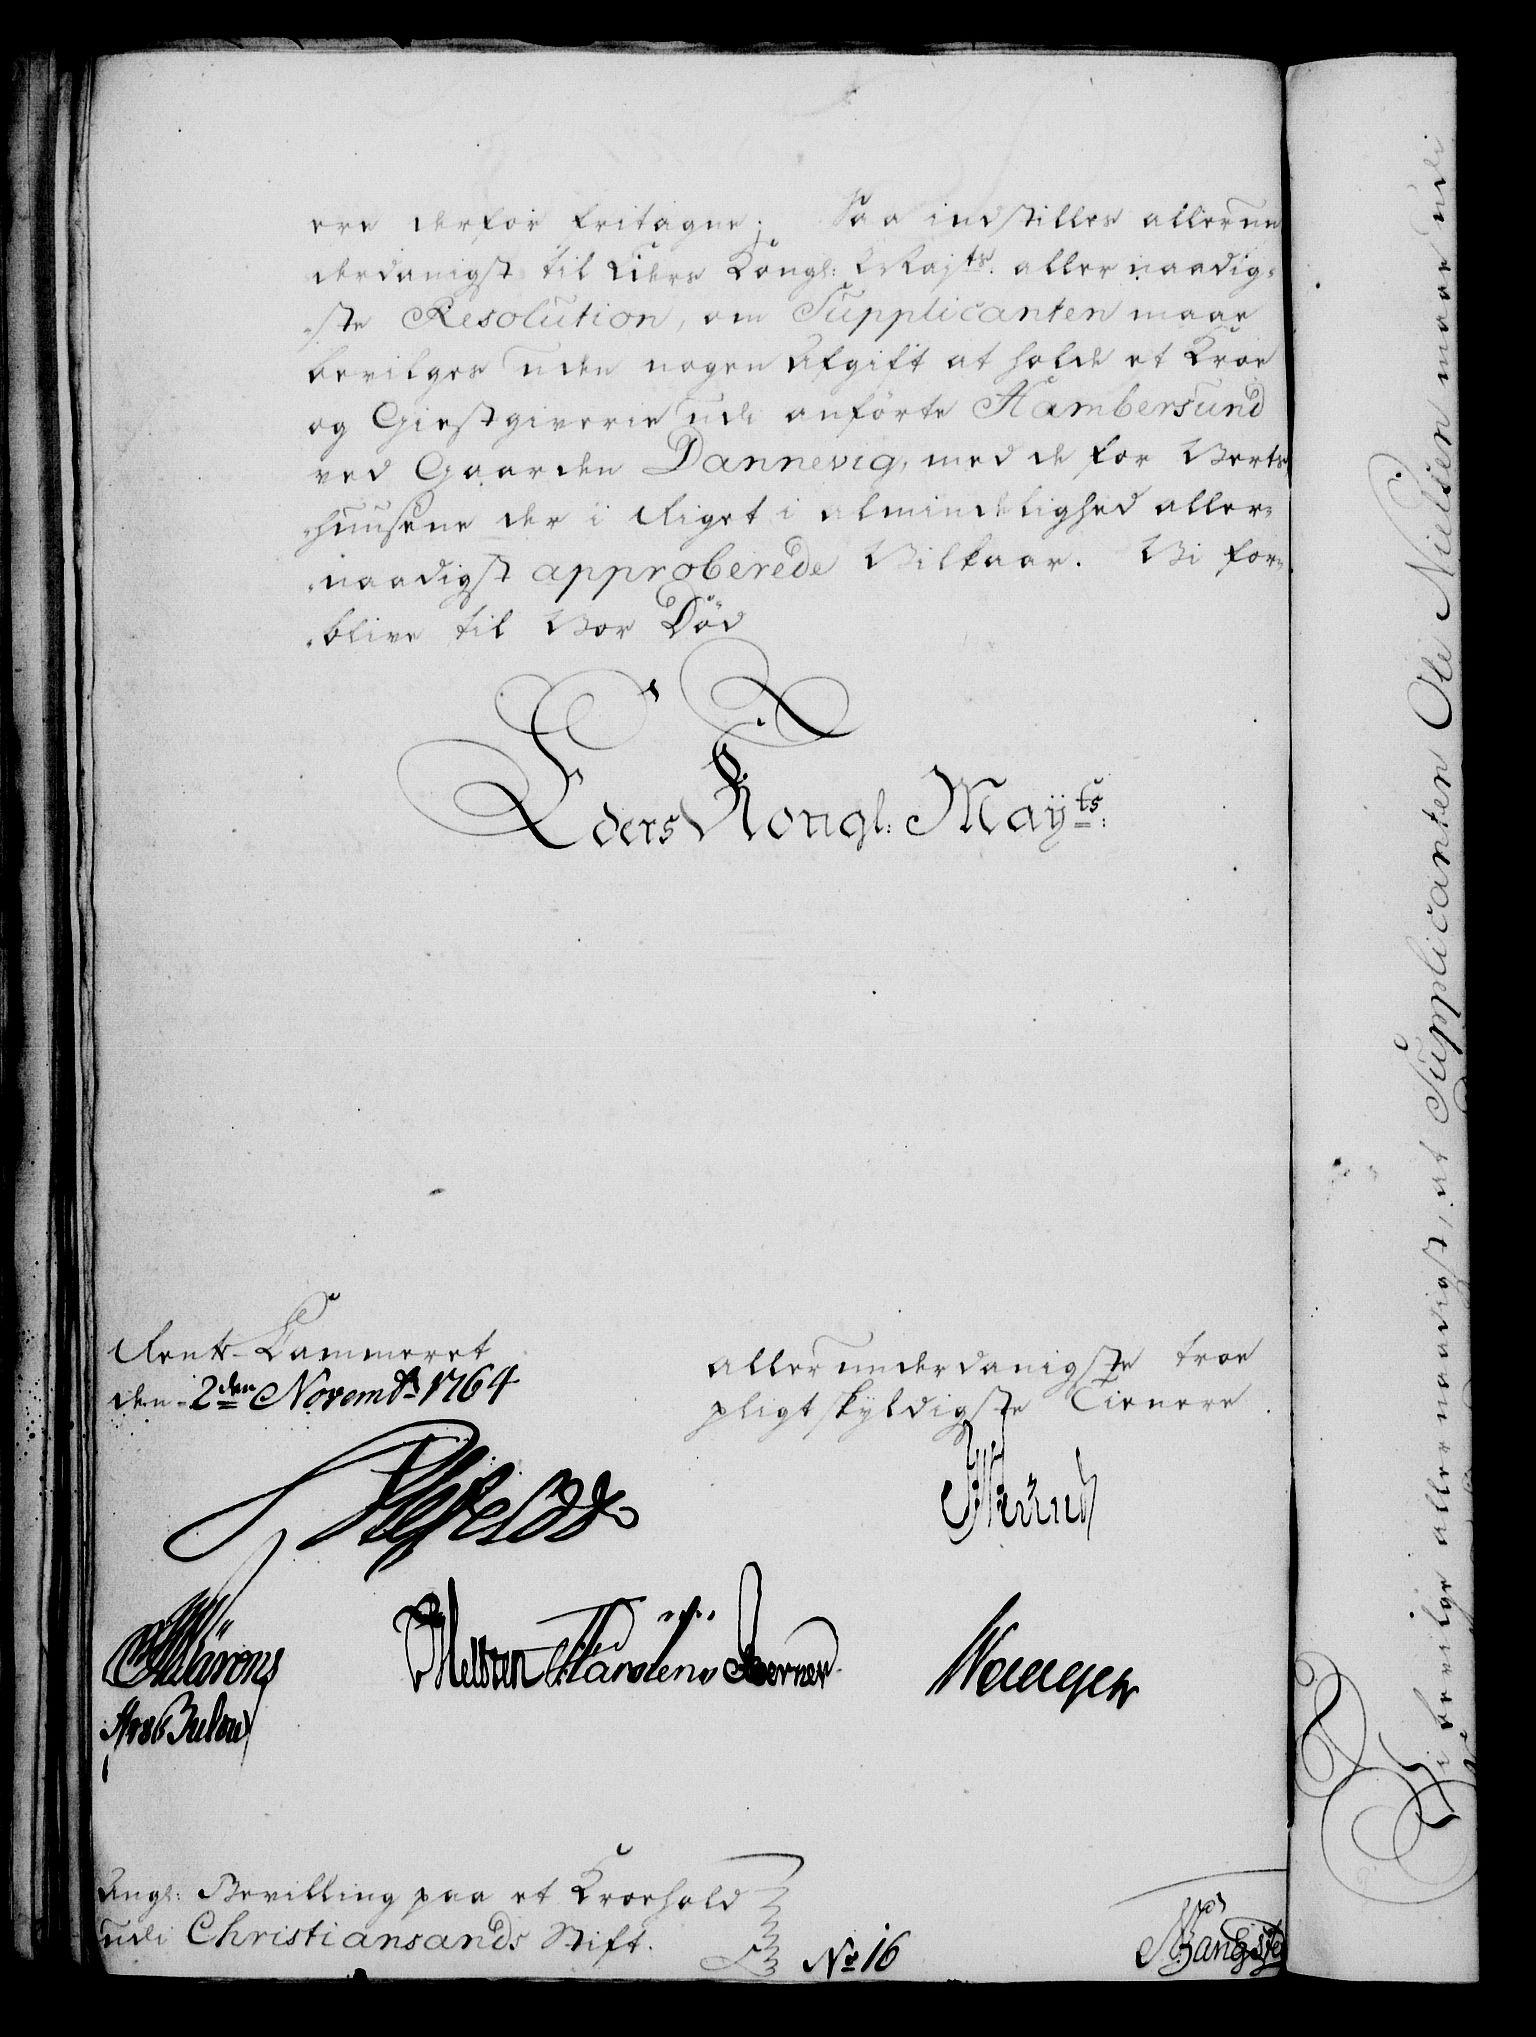 ere derfor fritagne; Saa indstilles allerun
derdanigst til Eders Kongl: Majts. allernaadig-
-ste Resolution, om Supplicanten maae
bevilges uden nogen Afgift at holde et Kroe
og Giestgiverie udi anførte Hambersund
ved Gaarden Dannevig, med de for Verts
-huusene der i Riget i almindelighed aller-
-naadigst approberede Vilkaar. Vi for-
-blive til Vor Død
Eders Kongl: Mayts:
Rente-Cammeret
den 2den Novembr 1764
allerunderdanigste troe
pligtskyldigste Tienere
Angl: Bevilling paa et Kroehold
udi Christiansands Stift.
No 16
Vi bevilge allernaadigst, at Supplicanten Ole Nielsen maae udi